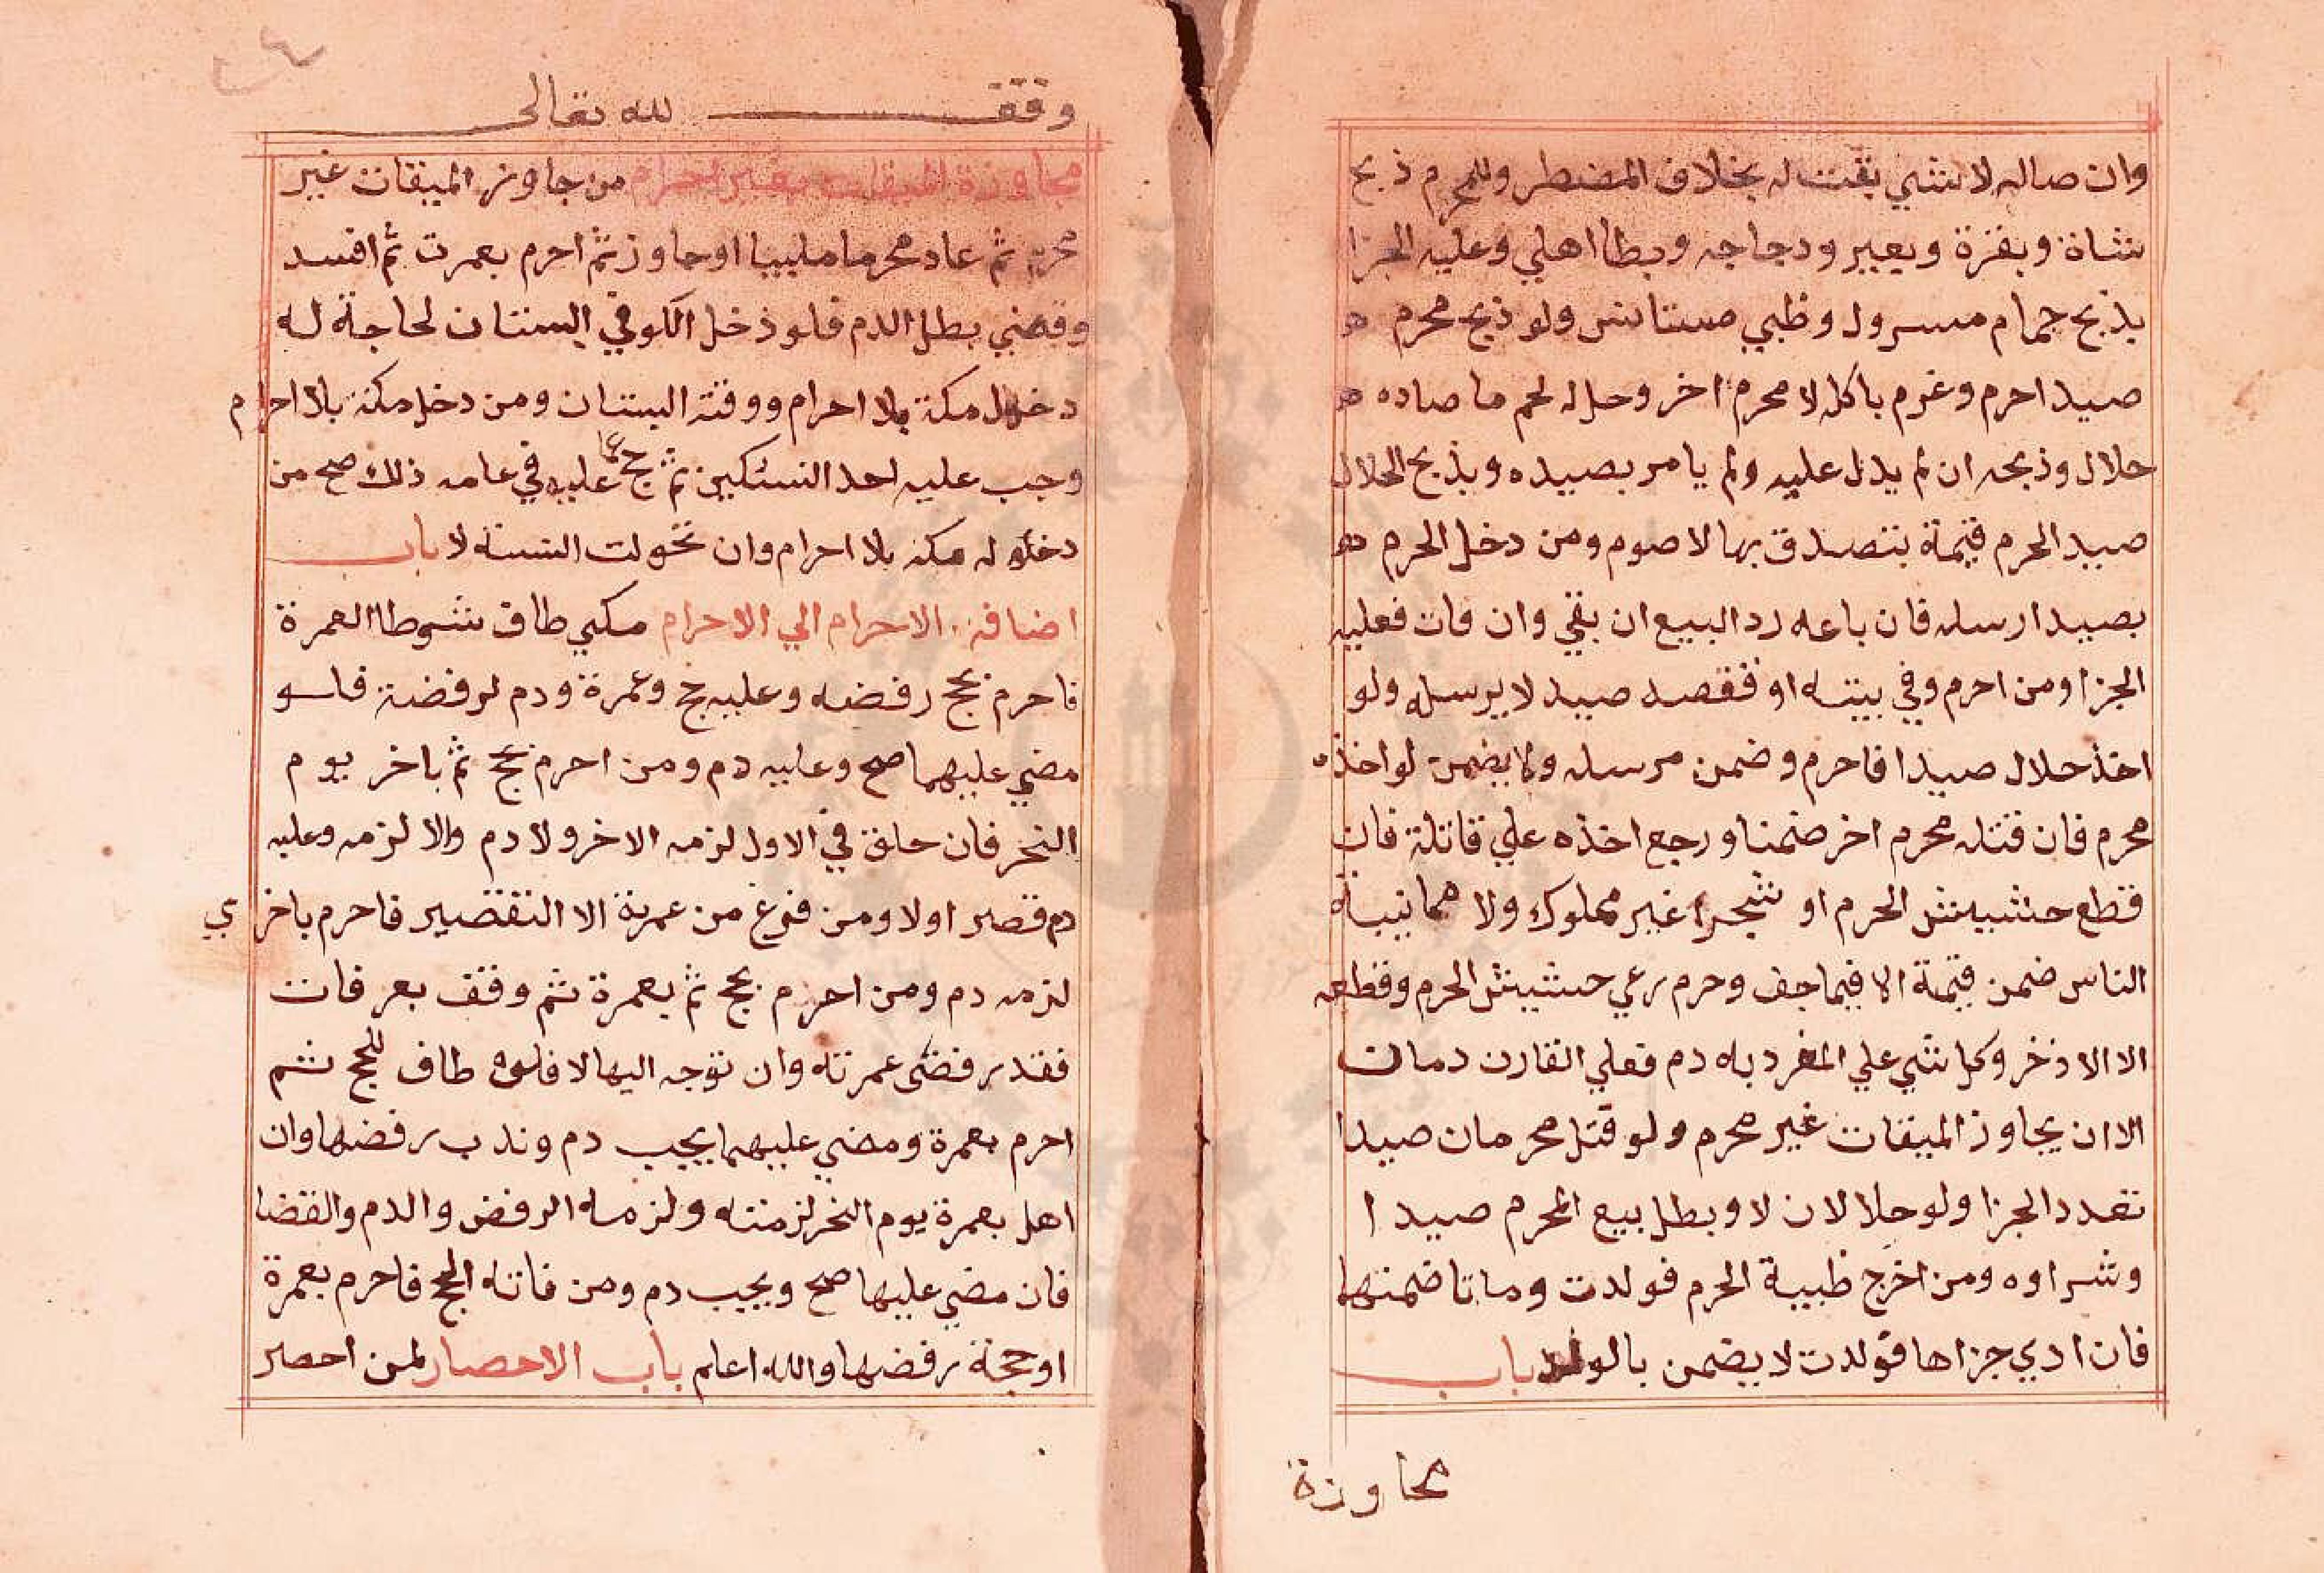 وان صاله لا شي بقتله بخلاف المضطر وللمحرم ذبح
شاة وبقرة وبعير ودجاجه وبطا اهلي وعليه الجزا
بذبح حمام مسرول وظبي مستانس ولو ذبح محرم
صيدا حرم وغرم باكله لا محرم اخر وحل له لحم ما صاده
حلال وذبحه ان لم يدل عليه ولم يامر بصيده وبذبح الحلال
صيد الحرم قيمة يتصدق بها لا صوم ومن دخل الحرم
بصيد ارسله فان باعه رد البيع ان بقي وان فات فعليه
الجزا ومن احرم وفي بيته او قفصه صيد لا يرسله ولو
اخذ حلال صيدا فاحرم وضمن مرسله ولا يضمن لو اخذه
محرم فان قتله محرم اخر ضمنا ورجع اخذه علي قاتلة فان
قطع حشيش الحرم او شجرا غير مملوك ولا مما ينبته
الناس ضمن قيمة الا فيما جف وحرم رعي حشيش الحرم وقطعه
الا الاذخر وكل شي علي المفرد به دم فعلي القارن دمان
الا ان يجاوز الميقات غير محرم ولو قتل محرمان صيدا
تعدد الجزا ولو حلالان لا وبطل بيع المحرم صيدا
وشراوه ومن اخرج ظبية الحرم فولدت وماتا ضمنتهما
فان ادي جزاها فولدت لا يضمن بالولد باب
مجاوزة
وقف لله تعالى
مجاوزة الميقات بغير احرام من جاوز الميقات غير
محرم ثم عاد محرما ملبيا او جاوز ثم احرم بعمرت ثم افسد
وقضي بطل الدم فلو دخل الكوفي البستان لحاجة له
دخول مكة بلا احرام ووقته البستان ومن دخل مكة بلا احرام
وجب عليه احد النسكين ثم حج عما عليه في عامه ذلك صح من
دخوله مكه بلا احرام وان تحولت السنه لا باب
اضافة الاحرام الي الاحرام مكي طاف شوطا العمرة
فاحرم بحج رفضه وعليه حج وعمرة ودم لرفضة فلو
مضي عليهما صح وعليه دم ومن احرم بحج ثم باخر يوم
النحر فان حلق في الاول لزمه الاخر ولا دم والا لزمه وعليه
دم قصر اولا ومن فرغ من عمرته الا التقصير فاحرم باخري
لزمه دم ومن احرم بحج ثم بعمرة ثم وقف بعرفات
فقد رفض عمرته وان توجه اليها لا فلو طاف للحج ثم
احرم بعمرة ومضي عليهما يجب دم وندب رفضها وان
اهل بعمرة يوم النحر لزمته ولزمه الرفض والدم والقضا
فان مضي عليها صح ويجب دم ومن فاته الحج فاحرم بعمرة
او حجة رفضها والله اعلم باب الاحصار لمن احصر